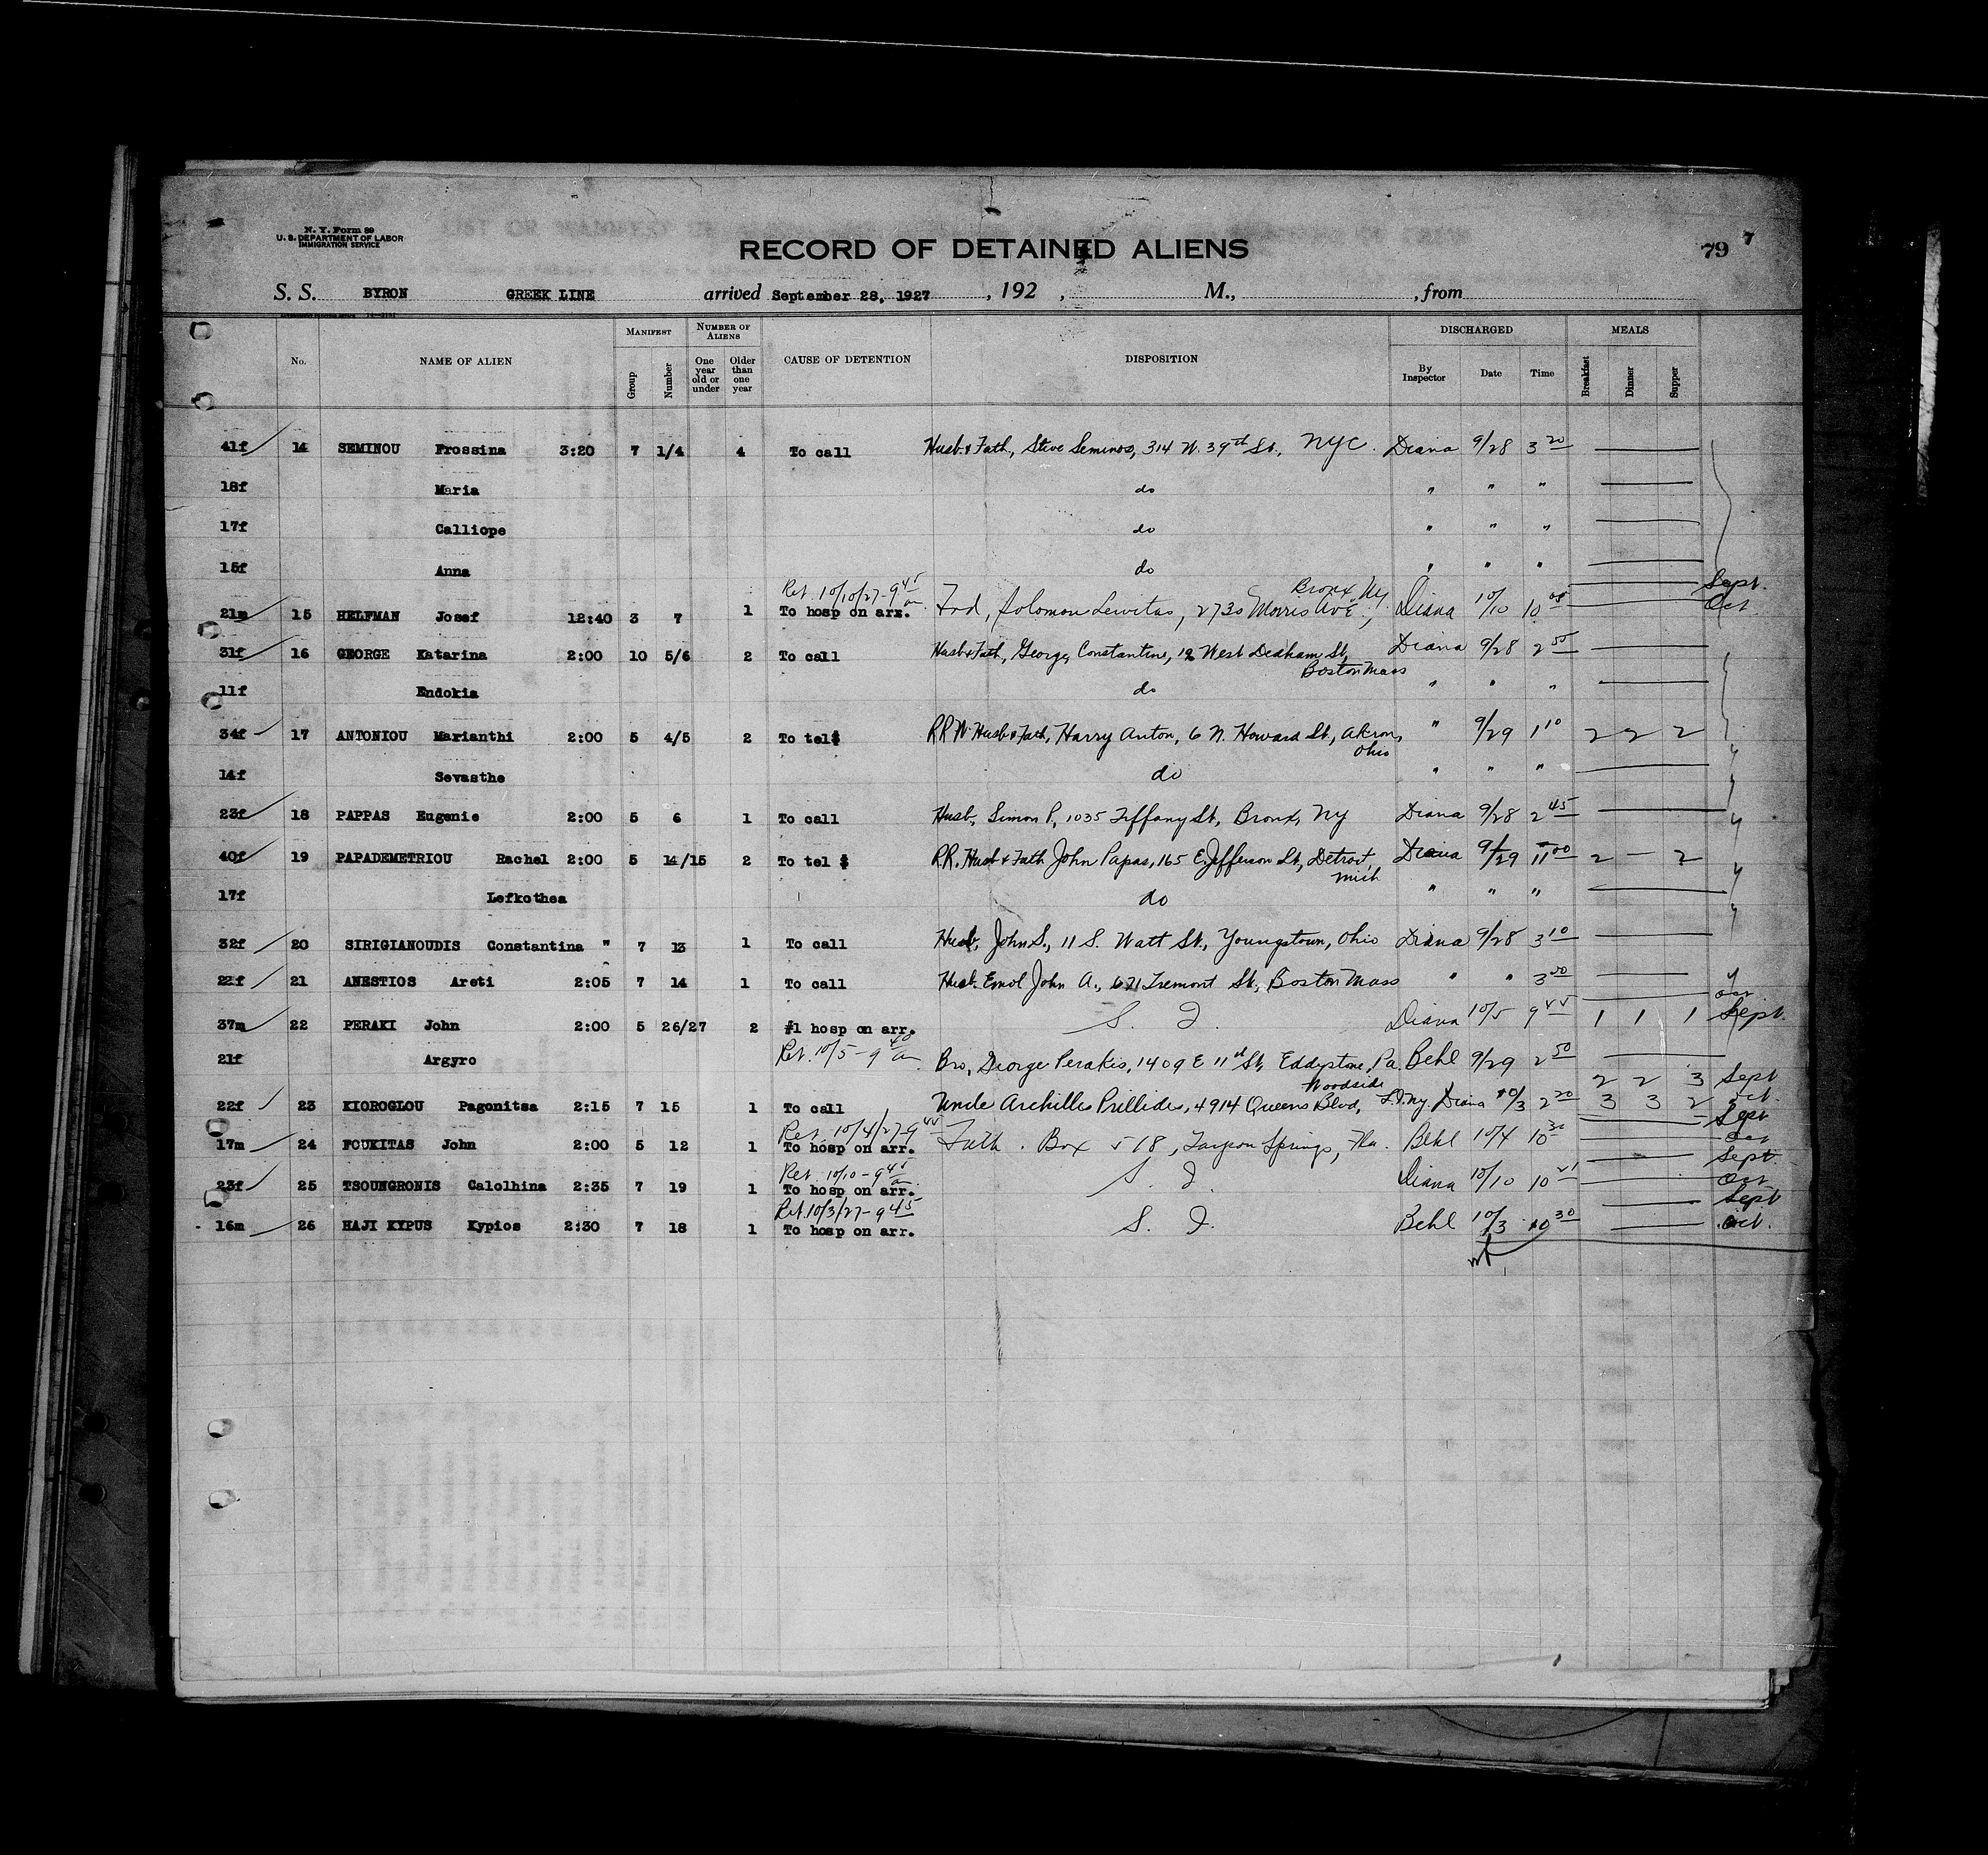 N. Y. Form 89
U. S. DEPARTMENT OF LABOR
IMMIGRATION SERVICE
RECORD OF DETAINED ALIENS
79 7
S. S. BYRON GREEK LINE arrived September 28, 1927, 192 , M., , from
No. NAME OF ALIEN MANIFEST NUMBER OF ALIENS CAUSE OF DETENTION DISPOSITION DISCHARGED MEALS
Group Number One year old or under Older than one year By Inspector Date Time Breakfast Dinner Supper
41f 14 SEMINOU Frossina 3:20 7 1/4 4 To call Husb. & Fath, Steve Seminos, 314 W. 39th St., NYC. Diana 9/28 3 20
18f Maria do " " "
17f Calliope do " " "
15f Anna do " " "
Ret. 10/10/27-9 45 a Bronx, Ny Sept.
21m 15 HELFMAN Josef 12:40 3 7 1 To hosp on arr. Frd, Solomon Lewitas, 2730 Morris Ave, Diana 10/10 10 00 Oct
31f 16 GEORGE Katarina 2:00 10 5/6 2 To call Husb & Fath, George, Constantine, 12 West Dedham St, Diana 9/28 2 55
Boston Mass
11f Endokia do " " "
34f 17 ANTONIOU Marianthi 2:00 5 4/5 2 To tel$ R.R. N Husb & Fath, Harry Anton, 6 N. Howard St., Akron, " 9/29 1 10 2 2 2
Ohio
14f Sevasthe do " " "
23f 18 PAPPAS Eugenie 2:00 5 6 1 To call Husb, Simon P., 1035 Tiffany St, Bronx, Ny Diana 9/28 2 45
40f 19 PAPADEMETRIOU Rachel 2:00 5 14/15 2 To tel $ R.R. Husb & Fath John Papas, 165 E. Jefferson St, Detroit, Diana 9/29 11 00 2 — 2
Mich
17f Lefkothea do " " "
32f 20 SIRIGIANOUDIS Constantina " 7 13 1 To call Husb, John S., 11 S. Watt St., Youngstown, Ohio Diana 9/28 3 10
22f 21 ANESTIOS Areti 2:05 7 14 1 To call Husb. John A., 671 Tremont St, Boston Mass " " 3 00
37m 22 PERAKI John 2:00 5 26/27 2 #1 hosp on arr. S. I. Diana 10/5 9 45 1 1 1 Sept.
Ret. 10/5-9 40 a
21f Argyro Bro, George Perakis, 1409 E 11th St, Eddystone, Pa. Behl 9/29 2 50
Woodside 2 2 3 Sept
22f 23 KIOROGLOU Pagonitsa 2:15 7 15 1 To call Uncle Archilles Prillides, 4914 Queens Blvd, L.I. Ny. Diana 10/3 2 20 3 3 2 Oct.
Ret. 10/4/27-9 45 Sept
17m 24 FOUKITAS John 2:00 5 12 1 To hosp on arr. Fath. Box 518, Tarpon Springs, Fla. Behl 10/4 10 30 Oct
Ret. 10/10-9 45 a Sept.
23f 25 TSOUNGRONIS Calolhina 2:35 7 19 1 To hosp on arr. S. I. Diana 10/10 10 Oct
Ret. 10/3/27-9 45 Sept
16m 26 HAJI KYPUS Kypios 2:30 7 18 1 To hosp on arr. S. I. Behl 10/3 10 30 Oct.